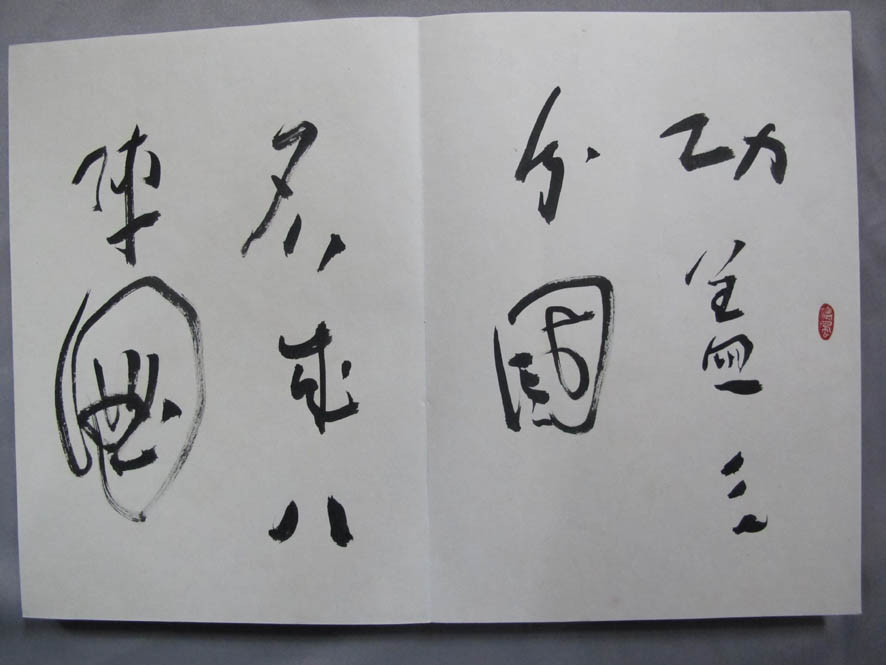 功盖三
分國
名成八
陣圖